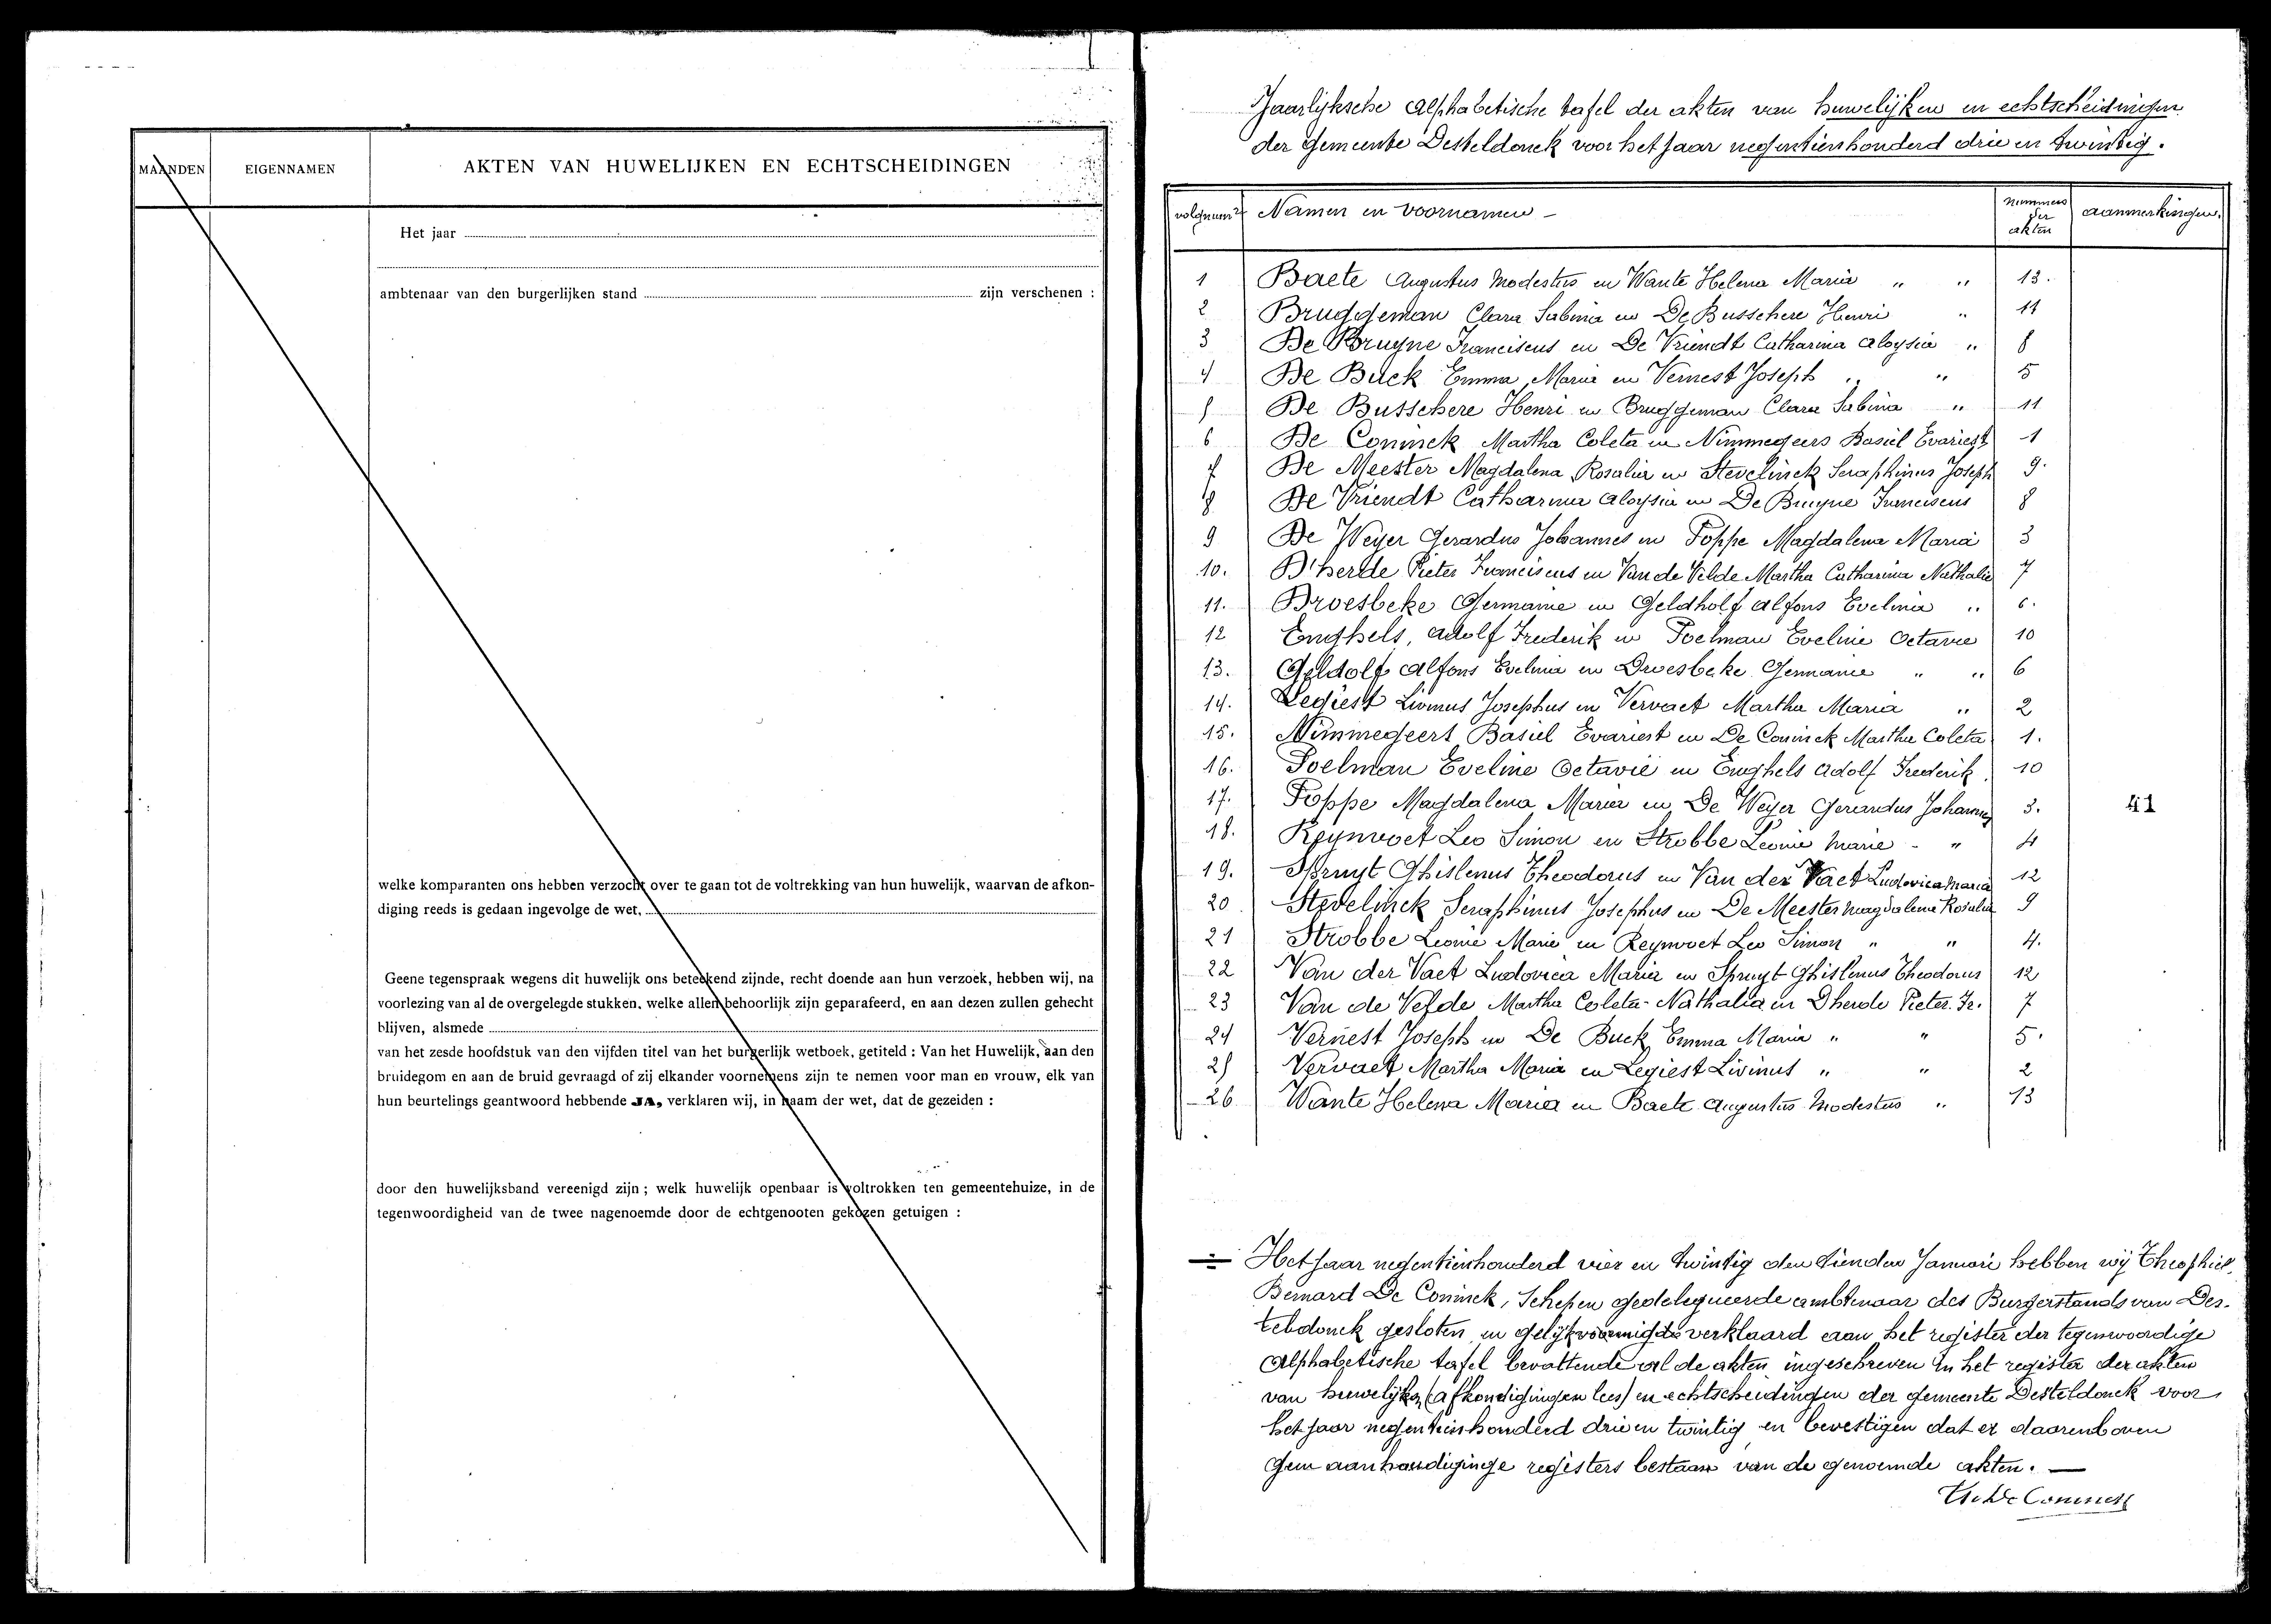 MAANDEN EIGENNAMEN AKTEN VAN HUWELIJKEN EN ECHTSCHEIDINGEN
Het jaar
ambtenaar van den burgerlijken stand zijn verschenen :
welke komparanten ons hebben verzocht over te gaan tot de voltrekking van hun huwelijk, waarvan de afkon-
diging reeds is gedaan ingevolge de wet,
Geene tegenspraak wegens dit huwelijk ons beteekend zijnde, recht doende aan hun verzoek, hebben wij, na
voorlezing van al de overgelegde stukken, welke allen behoorlijk zijn geparafeerd, en aan dezen zullen gehecht
blijven, alsmede
van het zesde hoofdstuk van den vijfden titel van het burgerlijk wetboek, getiteld : Van het Huwelijk, aan den
bruidegom en aan de bruid gevraagd of zij elkander voornemens zijn te nemen voor man en vrouw, elk van
hun beurtelings geantwoord hebbende JA, verklaren wij, in naam der wet, dat de gezeiden :
door den huwelijksband vereenigd zijn ; welk huwelijk openbaar is voltrokken ten gemeentehuize, in de
tegenwoordigheid van de twee nagenoemde door de echtgenooten gekozen getuigen :
Jaarlijksche Alphabetische tafel der akten van huwelijken en echtscheidingen
der Gemeente Desteldonck voor het jaar negentienhonderd drie en twintig.
volgnum^rs Namen en voornamen - nummers der akten aanmerkingen.
1 Baete Augustus Modestus en Wante Helena Maria " " 13.
2 Bruggeman Clara Sabina en De Busschere Henri " 11
3 De Bruyne Franciscus en De Vriendt Catharina Aloysia " 8
4 De Buck Emma Maria en Vernest Joseph " " 5
5 De Busschere Henri en Bruggeman Clara Sabina " 11
6 De Coninck Martha Coleta en Nimmegeers Basiel Evariest 1
7 De Meester Magdalena Rosalia en Stevelinck Seraphinus Joseph 9.
8 De Vriendt Catharina Aloysia en De Bruyne Franciscus 8
9 De Weyer Gerardus Johannes en Poppe Magdalena Maria 3
10. D'herde Pieter Franciscus en Van de Velde Martha Catharina Nathalie 7
11. Droesbeke Germaine en Geldholf Alfons Evelina " 6.
12 Enghels, Adolf Frederik en Poelman Eveline Octavie 10
13. Geldolf Alfons Evelina en Droesbeke Germanie " " 6
14. Legiest Livinus Josephus en Vervaet Martha Maria " 2
15. Nimmegeers Basiel Evariest en De Coninck Martha Coleta 1.
16. Poelman Eveline Octavie en Enghels Adolf Frederik 10
17. Poppe Magdalena Maria en De Weyer Gerardus Johannes 3. 41
18. Reynvoet Leo Simon en Strobbe Leonie Marie - " 4
19. Spruyt Ghislenus Theodorus en Van der Vaet Ludovica Maria 12
20 Stevelinck Seraphinus Josephus en De Meester Magdalena Rosalia 9
21 Strobbe Leonie Marie en Reynvoet Leo Simon " " 4.
22 Van der Vaet Ludovica Maria en Spruyt Ghislenus Theodorus 12
23 Van de Velde Martha Coleta-Nathalia en Dherde Pieter. Fr. 7
24 Vernest Joseph en De Buck Emma Maria " " 5.
25 Vervaet Martha Maria en Legiest Livinus " " 2
26 Wante Helena Maria en Baete Augustus Modestus " 13
Het jaar negentienhonderd vier en twintig den tienden Januari hebben wij Theophiel
Bernard De Coninck, Schepen gedelegueerde ambtenaar des Burgerstands van Des-
teldonck gesloten en gelijkvormigde verklaard aan het register der tegenwoordige
Alphabetische tafel bevattende al de akten ingeschreven in het register der akten
van huwelijks (afkondigingen lees) en echtscheidingen der gemeente Desteldonck voor
het jaar negentienhonderd drie en twintig en bevestigen dat er daarenboven
geen aanhoudiginge registers bestaan van de genoemde akten. —
De Coninck